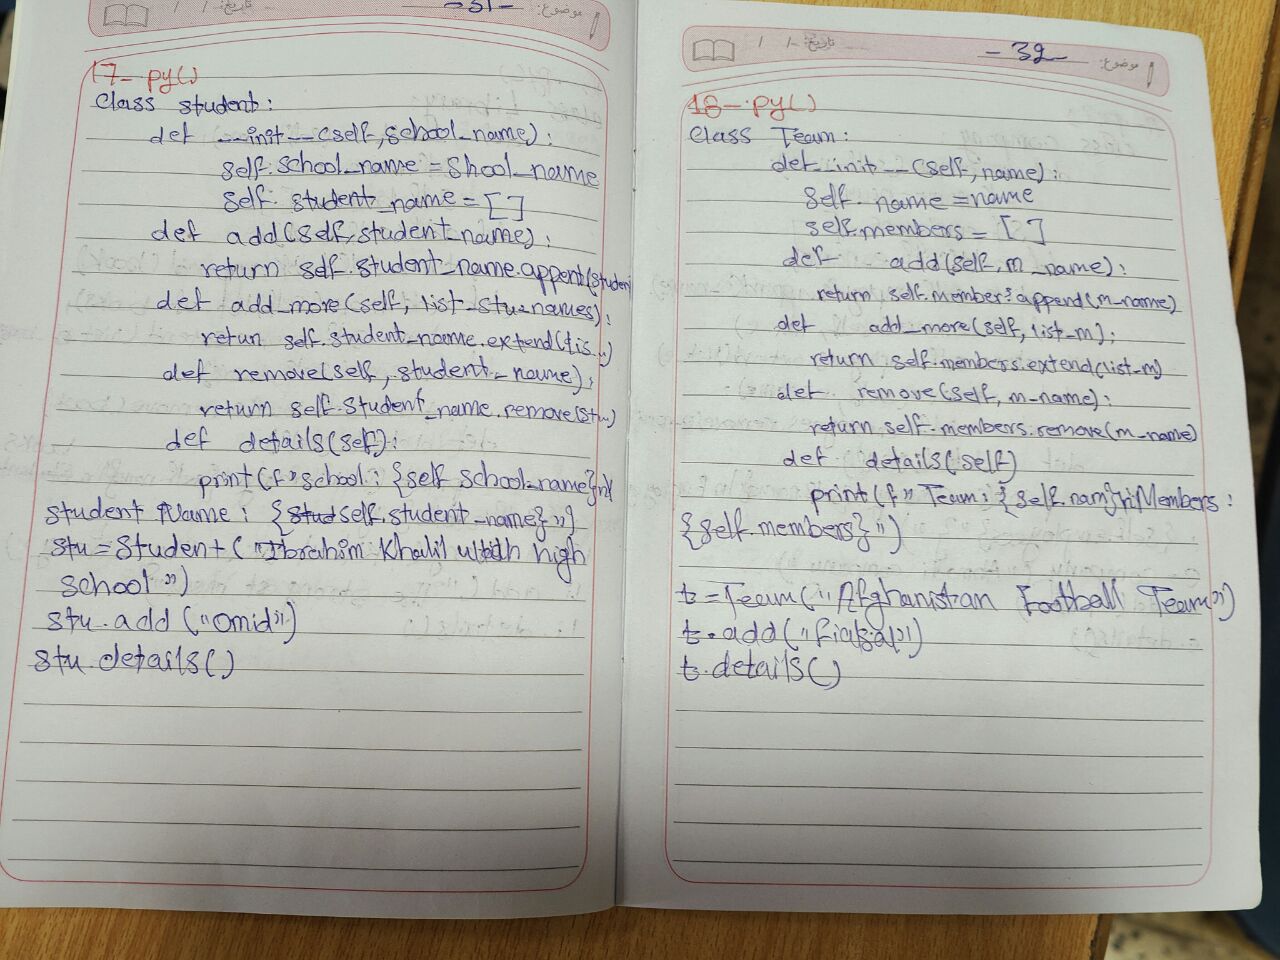 -31-
موضوع:
تاریخ: / /
17- py()
Class student:
def __init__(self, school_name):
self.school_name = shool_name
self. student_name = [ ]
def add(self, student_name):
return self.student_name.append(studen
def add_more(self, list_stu_names):
retun self.student_name.extend(lis..)
def remove(self, student_name):
return self.student_name.remove(stu..)
def details(self):
print(f"school: {self school_name}\n
student Name: {self.student_name}")
stu = Student("Ibrahim Khalil high
school")
stu.add("Omid")
stu.details()
-32-
موضوع:
تاریخ: / /
18-.py()
Class Team:
def_init__(self, name):
self. name = name
self.members = [ ]
def add(self, m_name):
return self.members.append(m_name)
def add_more(self, list_m):
return self.members.extend(list_m)
def remove(self, m_name):
return self.members.remove(m_name)
def details(self)
print(f" Team: {self.nam}\nMembers:
{self.members}")
t = Team("Afghanistan Football Team")
t.add("")
t.details()